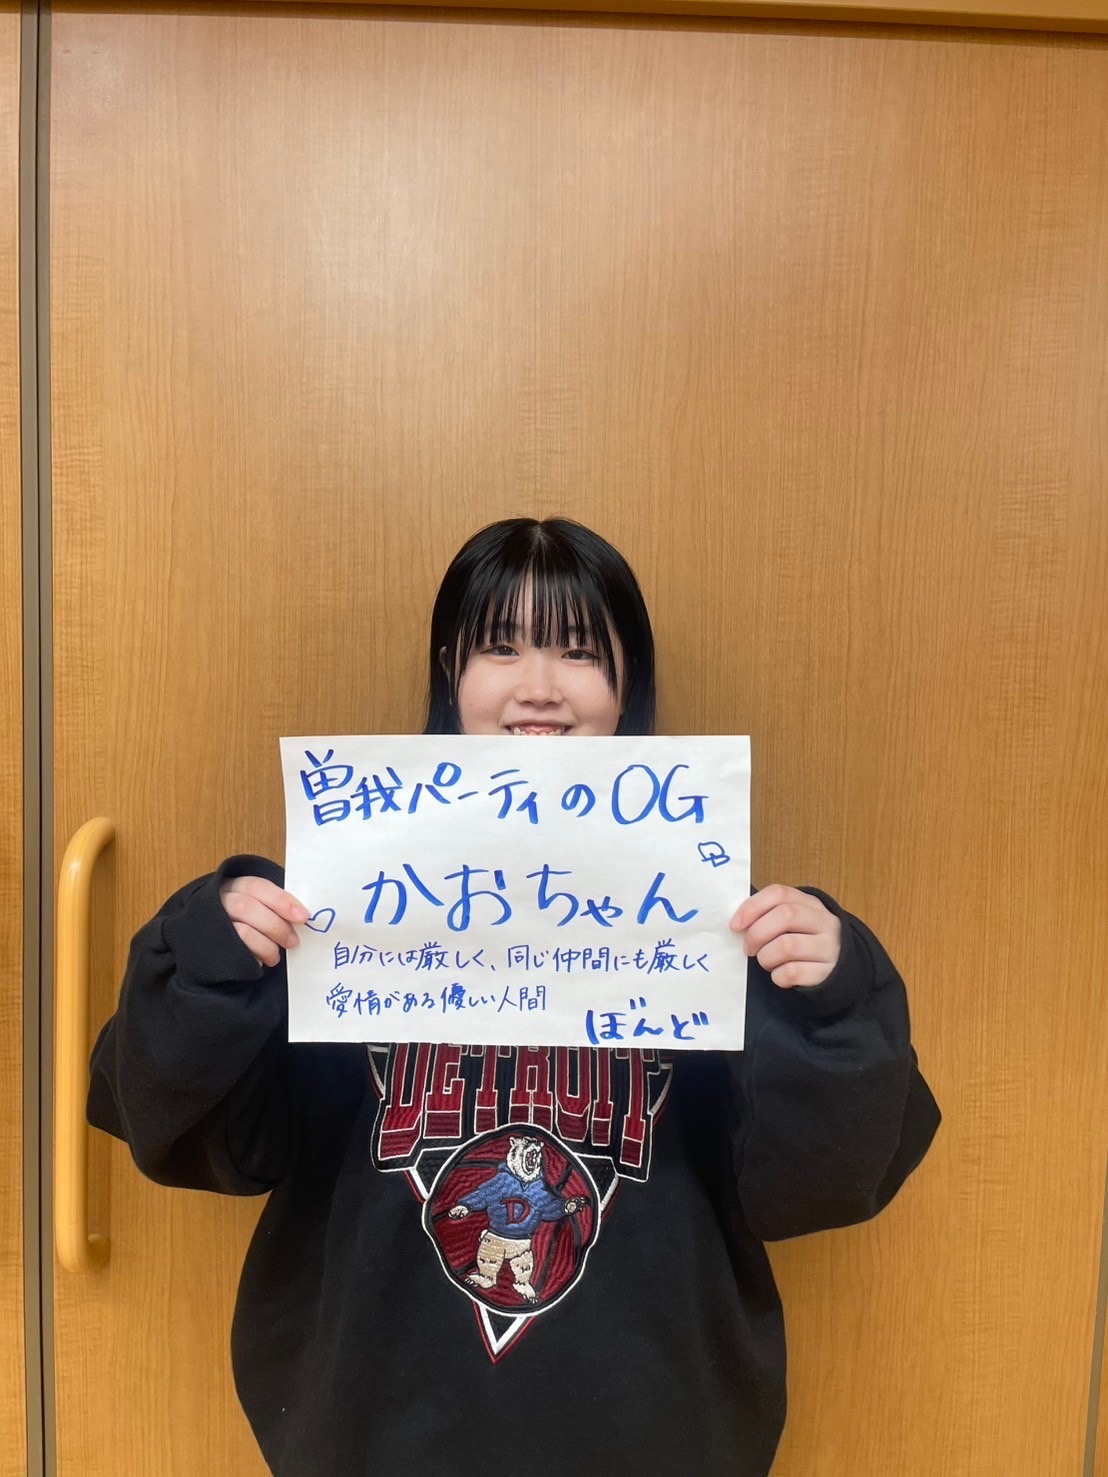 曽我パーティのOG
かおちゃん
自分には厳しく、同じ仲間にも厳しく
愛情がある優しい人間
ぼんど
DETROIT
D